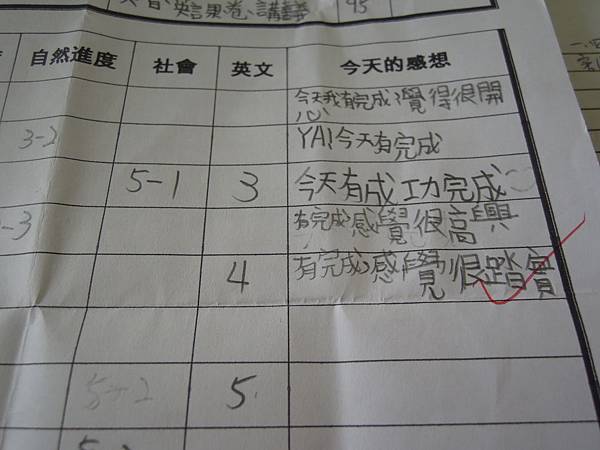 英言果卷、講義 95
自然進度 社會 英文 今天的感想
今天我有完成,覺得很開心
3-2 YA!今天有完成
5-1 3 今天有成功完成
-3 有完成感覺很高興
4 有完成感覺很踏實
5-2 5.